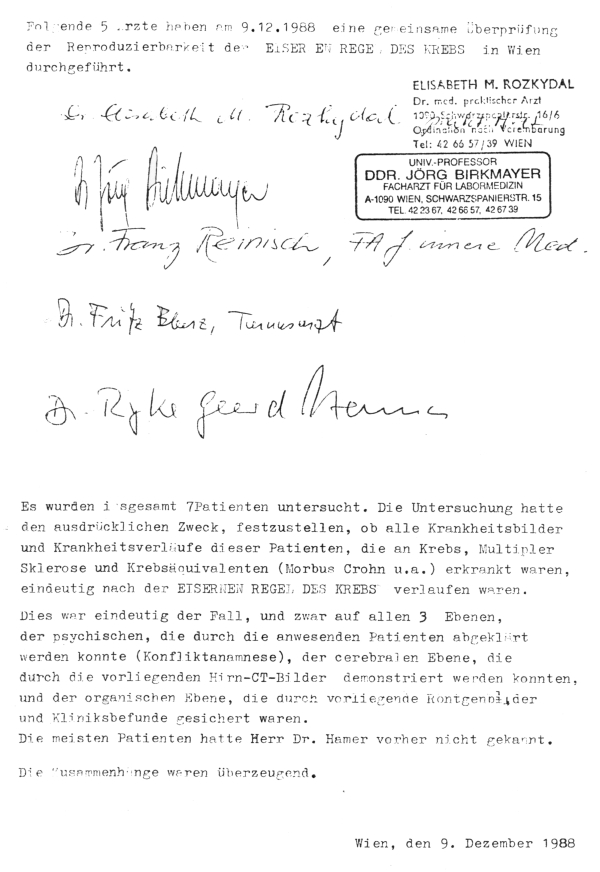 Folgende 5 Ärzte haben am 9.12.1988 eine gemeinsame Überprüfung
der Reproduzierbarkeit der EISERNEN REGEL DES KREBS in Wien
durchgeführt.
Dr. Elisabeth M. Rozkydal
ELISABETH M. ROZKYDAL
Dr. med. praktischer Arzt
1090 Schwarzspanierstr. 16/6
Ordination nach Vereinbarung
Tel: 42 66 57/39 WIEN
Dr Jörg Birkmayer
UNIV.-PROFESSOR
DDR. JÖRG BIRKMAYER
FACHARZT FÜR LABORMEDIZIN
A-1090 WIEN, SCHWARZSPANIERSTR. 15
TEL. 42 23 67, 42 66 57, 42 67 39
Dr. Franz Reinisch, FA f. innere Med.
Dr. Fritz Turnusarzt
Dr. Ryke Geerd Hamer
Es wurden insgesamt 7Patienten untersucht. Die Untersuchung hatte
den ausdrücklichen Zweck, festzustellen, ob alle Krankheitsbilder
und Krankheitsverläufe dieser Patienten, die an Krebs, Multipler
Sklerose und Krebsäquivalenten (Morbus Crohn u.a.) erkrankt waren,
eindeutig nach der EISERNEN REGEL DES KREBS verlaufen waren.
Dies war eindeutig der Fall, und zwar auf allen 3 Ebenen,
der psychischen, die durch die anwesenden Patienten abgeklärt
werden konnte (Konfliktanamnese), der cerebralen Ebene, die
durch die vorliegenden Hirn-CT-Bilder demonstriert werden konnten,
und der organischen Ebene, die durch vorliegende Röntgenbilder
und Kliniksbefunde gesichert waren.
Die meisten Patienten hatte Herr Dr. Hamer vorher nicht gekannt.
Die Zusammenhänge waren überzeugend.
Wien, den 9. Dezember 1988